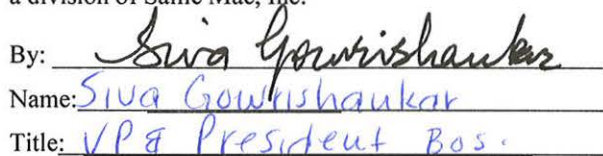 a division of Sallie Mae, Inc.
By: Siva Gowrishankar
Name: Siva Gowrishankar
Title: VP & President Bos.